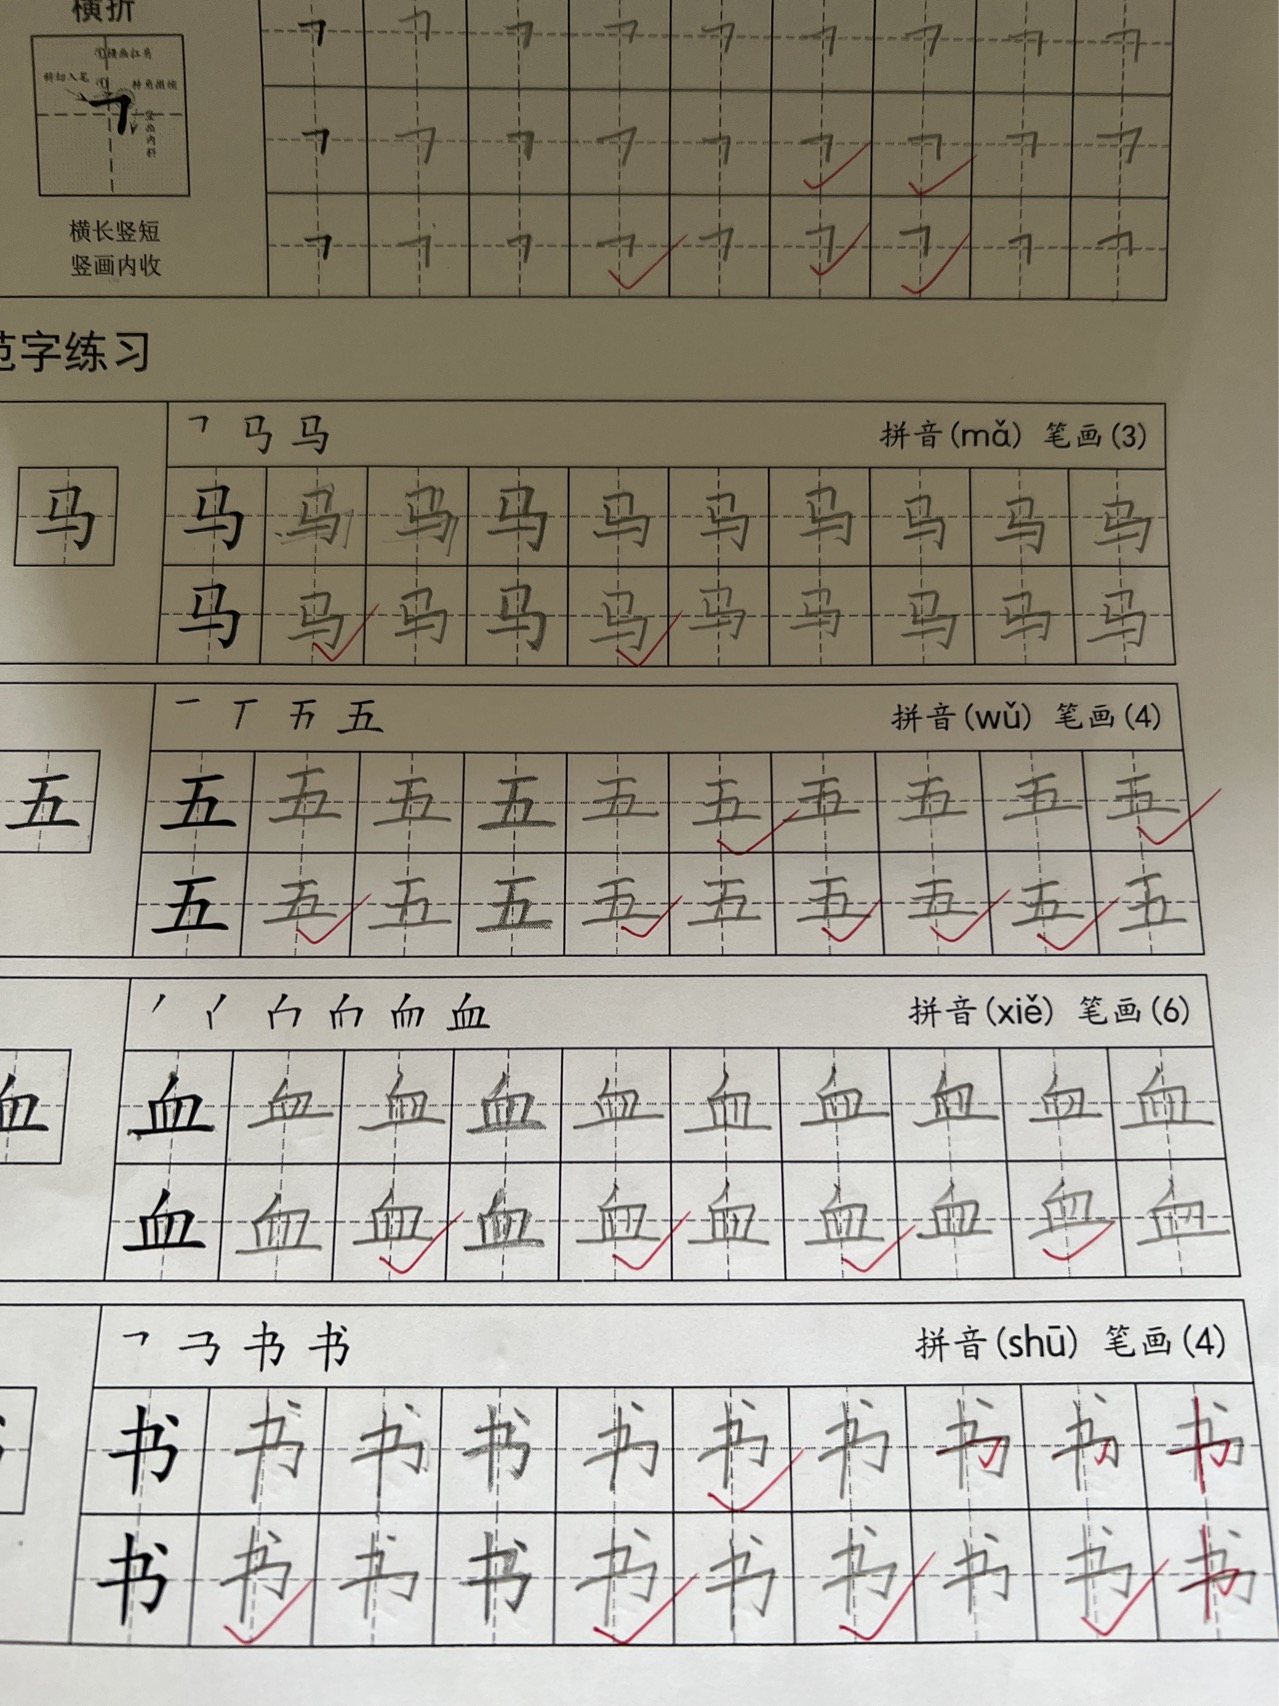 横折
①横画扛肩
斜切入笔 ① 转角擫顿
竖画内斜
㇕ ㇕ ㇕ ㇕ ㇕ ㇕ ㇕ ㇕ ㇕
㇕ ㇕ ㇕ ㇕ ㇕ ㇕ ㇕ ㇕ ㇕
横长竖短
竖画内收
㇕ ㇕ ㇕ ㇕ ㇕ ㇕ ㇕ ㇕ ㇕
范字练习
马 拼音(mǎ) 笔画(3)
马 马 马 马 马 马 马 马 马 马 马
马 马 马 马 马 马 马 马 马 马
一 丅 五 拼音(wǔ) 笔画(4)
五 五 五 五 五 五 五 五 五 五 五
五 五 五 五 五 五 五 五 五 五
血 拼音(xiě) 笔画(6)
血 血 血 血 血 血 血 血 血 血 血
血 血 血 血 血 血 血 血 血 血
书 书 拼音(shū) 笔画(4)
书 书 书 书 书 书 书 书 书 书
书 书 书 书 书 书 书 书 书 书